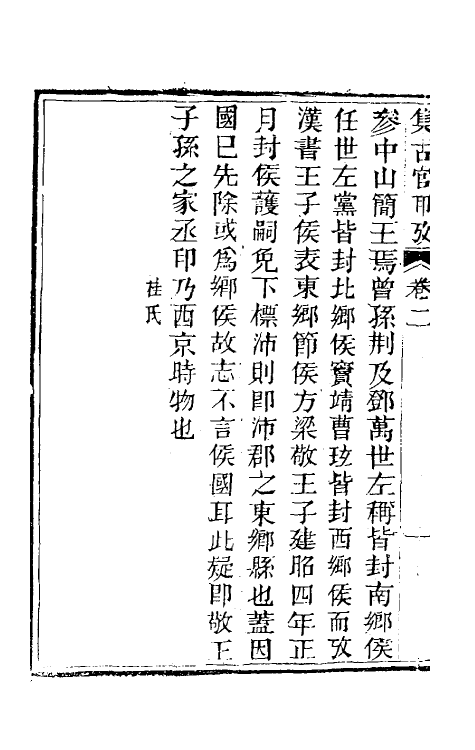 集古官印攷 卷二 一
參中山簡王焉曾孫荆及鄧萬世左稱皆封南鄉侯
任世左黨皆封北鄉侯竇靖曹琁皆封西鄉侯而攷
漢書王子侯表東鄉節侯方梁敬王子建昭四年正
月封侯護嗣免下標沛則卽沛郡之東鄉縣也蓋因
國巳先除或爲鄉侯故志不言侯國耳此疑卽敬王
子孫之家丞印乃西京時物也
桂氏